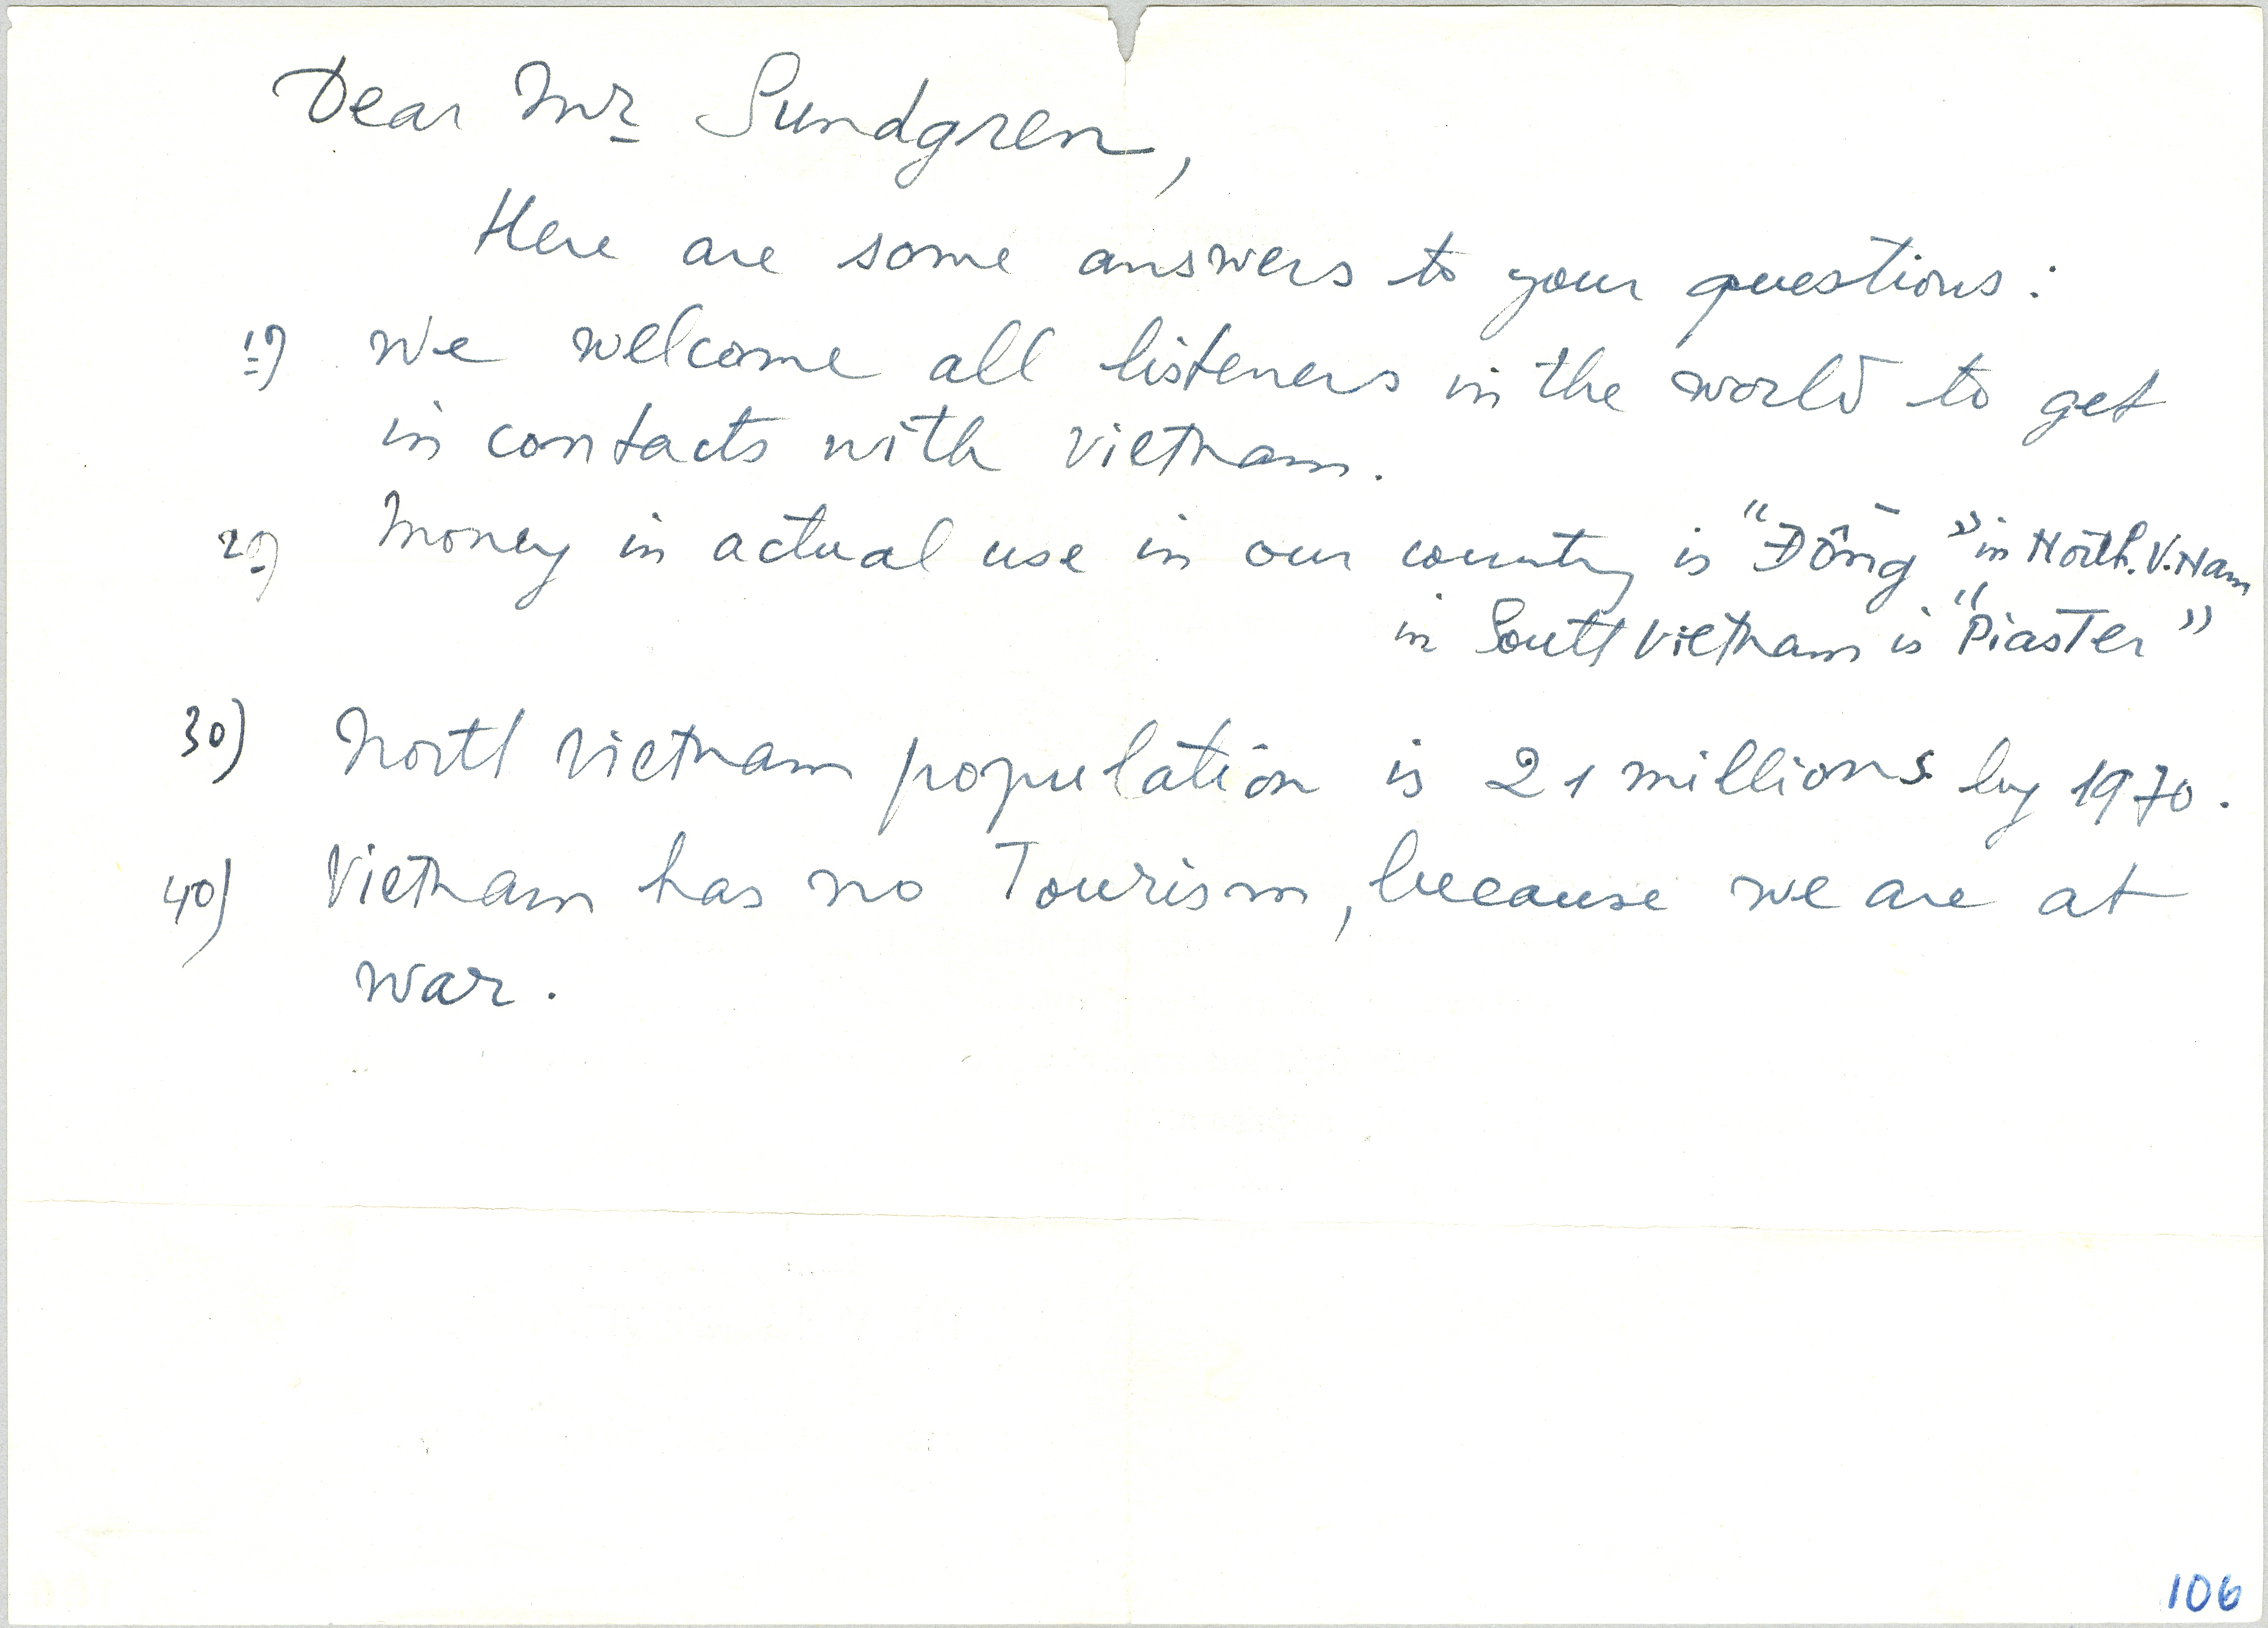 Dear Mr Sundgren,
Here are some answers to your questions:
1º) We welcome all listeners in the world to get
in contacts with Vietnam.
2º) Money in actual use in our country is "Đồng" in North. V. Nam
in South Vietnam is "Piaster"
3º) North Vietnam population is 21 millions by 1970.
4º) Vietnam has no Tourism, because we are at
war.
106